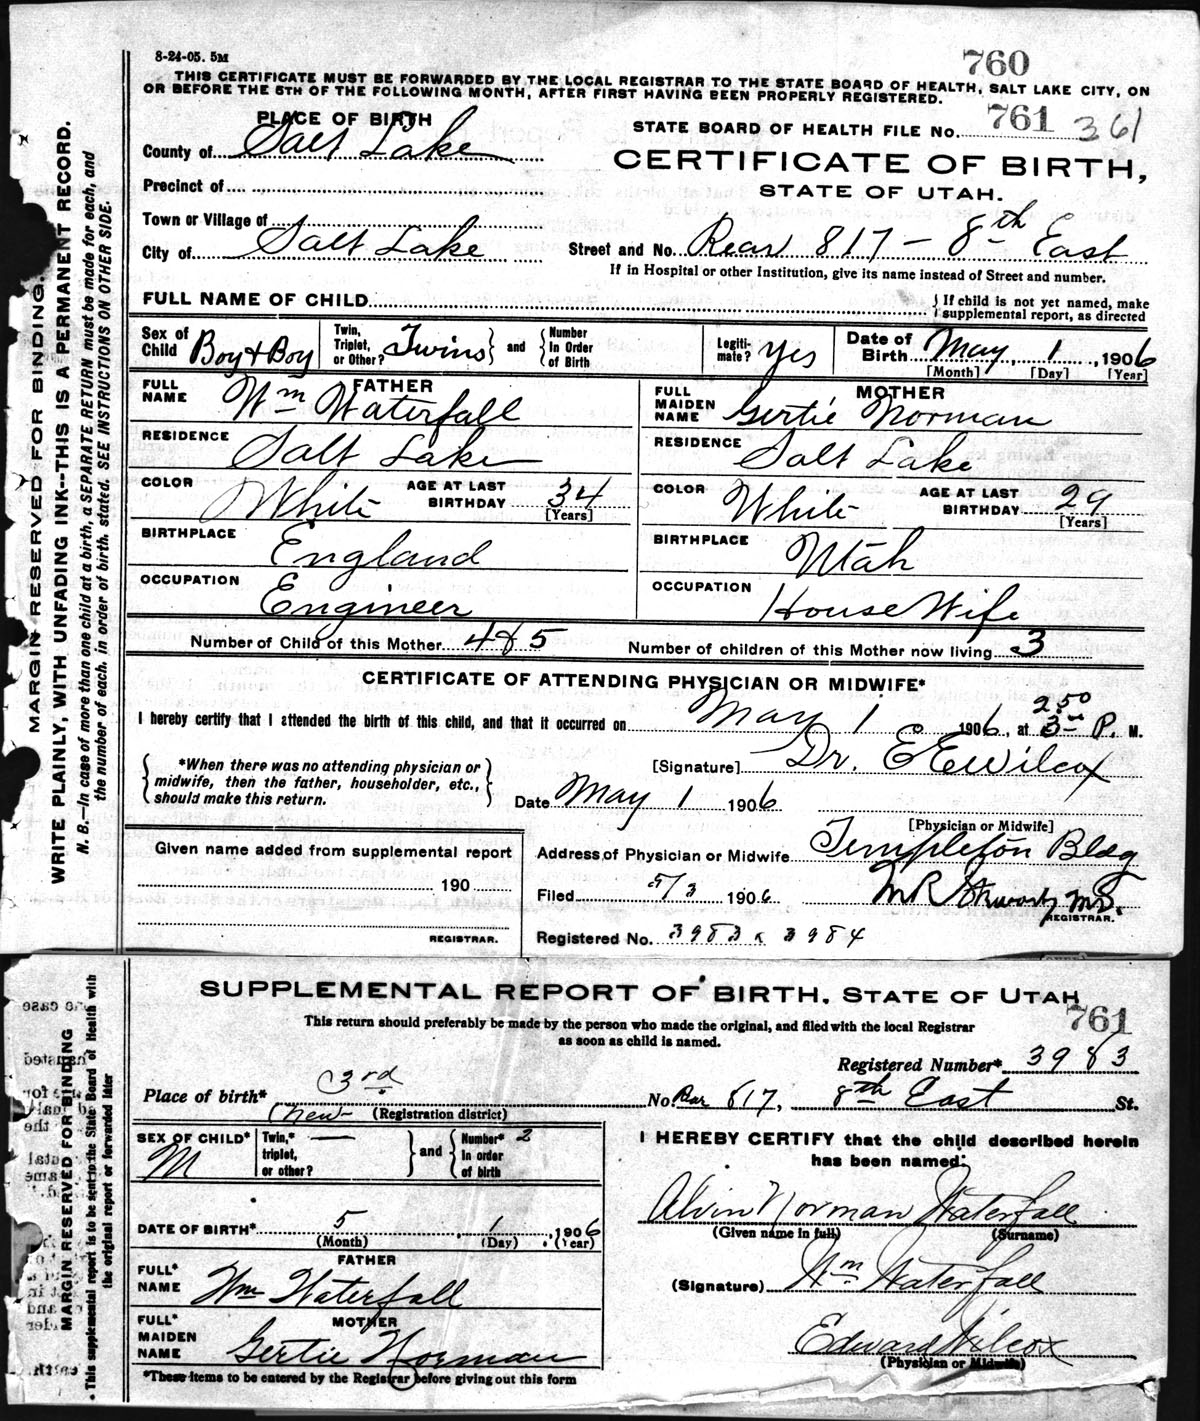 8-24-05. 5M
760
THIS CERTIFICATE MUST BE FORWARDED BY THE LOCAL REGISTRAR TO THE STATE BOARD OF HEALTH, SALT LAKE CITY, ON
OR BEFORE THE 5TH OF THE FOLLOWING MONTH, AFTER FIRST HAVING BEEN PROPERLY REGISTERED.
PLACE OF BIRTH
STATE BOARD OF HEALTH FILE No. 761 361
County of Salt Lake
CERTIFICATE OF BIRTH,
STATE OF UTAH.
Precinct of
Town or Village of
City of Salt Lake
Street and No. Rear 817 - 8th East
If in Hospital or other Institution, give its name instead of Street and number.
FULL NAME OF CHILD
{ If child is not yet named, make
supplemental report, as directed
Sex of Child Boy & Boy
Twin, Triplet, or Other? Twins } and { Number In Order of Birth
Legiti-mate? Yes
Date of Birth May 1, 1906
[Month] [Day] [Year]
FATHER
FULL NAME Wm Waterfall
MOTHER
FULL MAIDEN NAME Gertie Norman
RESIDENCE Salt Lake
RESIDENCE Salt Lake
COLOR White AGE AT LAST BIRTHDAY 34 [Years]
COLOR White AGE AT LAST BIRTHDAY 29 [Years]
BIRTHPLACE England
BIRTHPLACE Utah
OCCUPATION Engineer
OCCUPATION House Wife
Number of Child of this Mother 4 & 5
Number of children of this Mother now living 3
CERTIFICATE OF ATTENDING PHYSICIAN OR MIDWIFE*
2.50
I hereby certify that I attended the birth of this child, and that it occurred on May 1 1906, at 3 P. M.
{ *When there was no attending physician or
midwife, then the father, householder, etc.,
should make this return. }
[Signature] Dr. E E Wilcox
Date May 1 1906
[Physician or Midwife]
Given name added from supplemental report
190
REGISTRAR.
Address of Physician or Midwife Templeton Bldg
Filed 5/3 1906
M.D.
REGISTRAR.
Registered No. 3983 & 3984
MARGIN RESERVED FOR BINDING.
WRITE PLAINLY, WITH UNFADING INK--THIS IS A PERMANENT RECORD.
N. B.—In case of more than one child at a birth, a SEPARATE RETURN must be made for each, and
the number of each, in order of birth, stated. SEE INSTRUCTIONS ON OTHER SIDE.
SUPPLEMENTAL REPORT OF BIRTH, STATE OF UTAH
761
This return should preferably be made by the person who made the original, and filed with the local Registrar
as soon as child is named.
Registered Number* 3983
Place of birth* 3rd New
(Registration district)
No. Rear 817, 8th East St.
SEX OF CHILD* M
Twin,* triplet, or other? — } and { Number* 2 in order of birth
I HEREBY CERTIFY that the child described herein
has been named:
DATE OF BIRTH* 5 1, 1906
(Month) (Day) (Year)
Alvin Norman Waterfall
(Given name in full) (Surname)
FATHER
FULL* NAME Wm Waterfall
(Signature) Wm Waterfall
MOTHER
FULL* MAIDEN NAME Gertie Norman
Edward Wilcox
(Physician or Midwife)
*These items to be entered by the Registrar before giving out this form
MARGIN RESERVED FOR BINDING
* This supplemental report is to be sent to the State Board of Health with
the original report or forwarded later